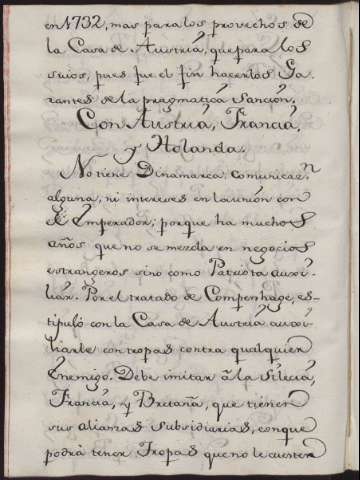 en 1732, mas para los provechos de
la Casa de Austria, que para los
suios, pues fue el fin hacerlos Ga-
rantes de la pragmatica Sanción.
Con Austria, Francia,
y Holanda.
No tiene Dinamarca comunicac.n
alguna, ni intereses en la unión con
el Emperador; porque ha muchos
años que no se mezcla en negocios
estrangeros sino como Patriota auxi-
liar. Por el tratado de Compenhage, es-
tipuló con la Casa de Austria auxi-
liarle con tropas contra qualquier
Enemigo. Debe imitar à la Silecia,
Francia, y Bretaña, que tienen
sus alianzas Subsidiarias, con que
podrà tener Tropas que no le cuesten